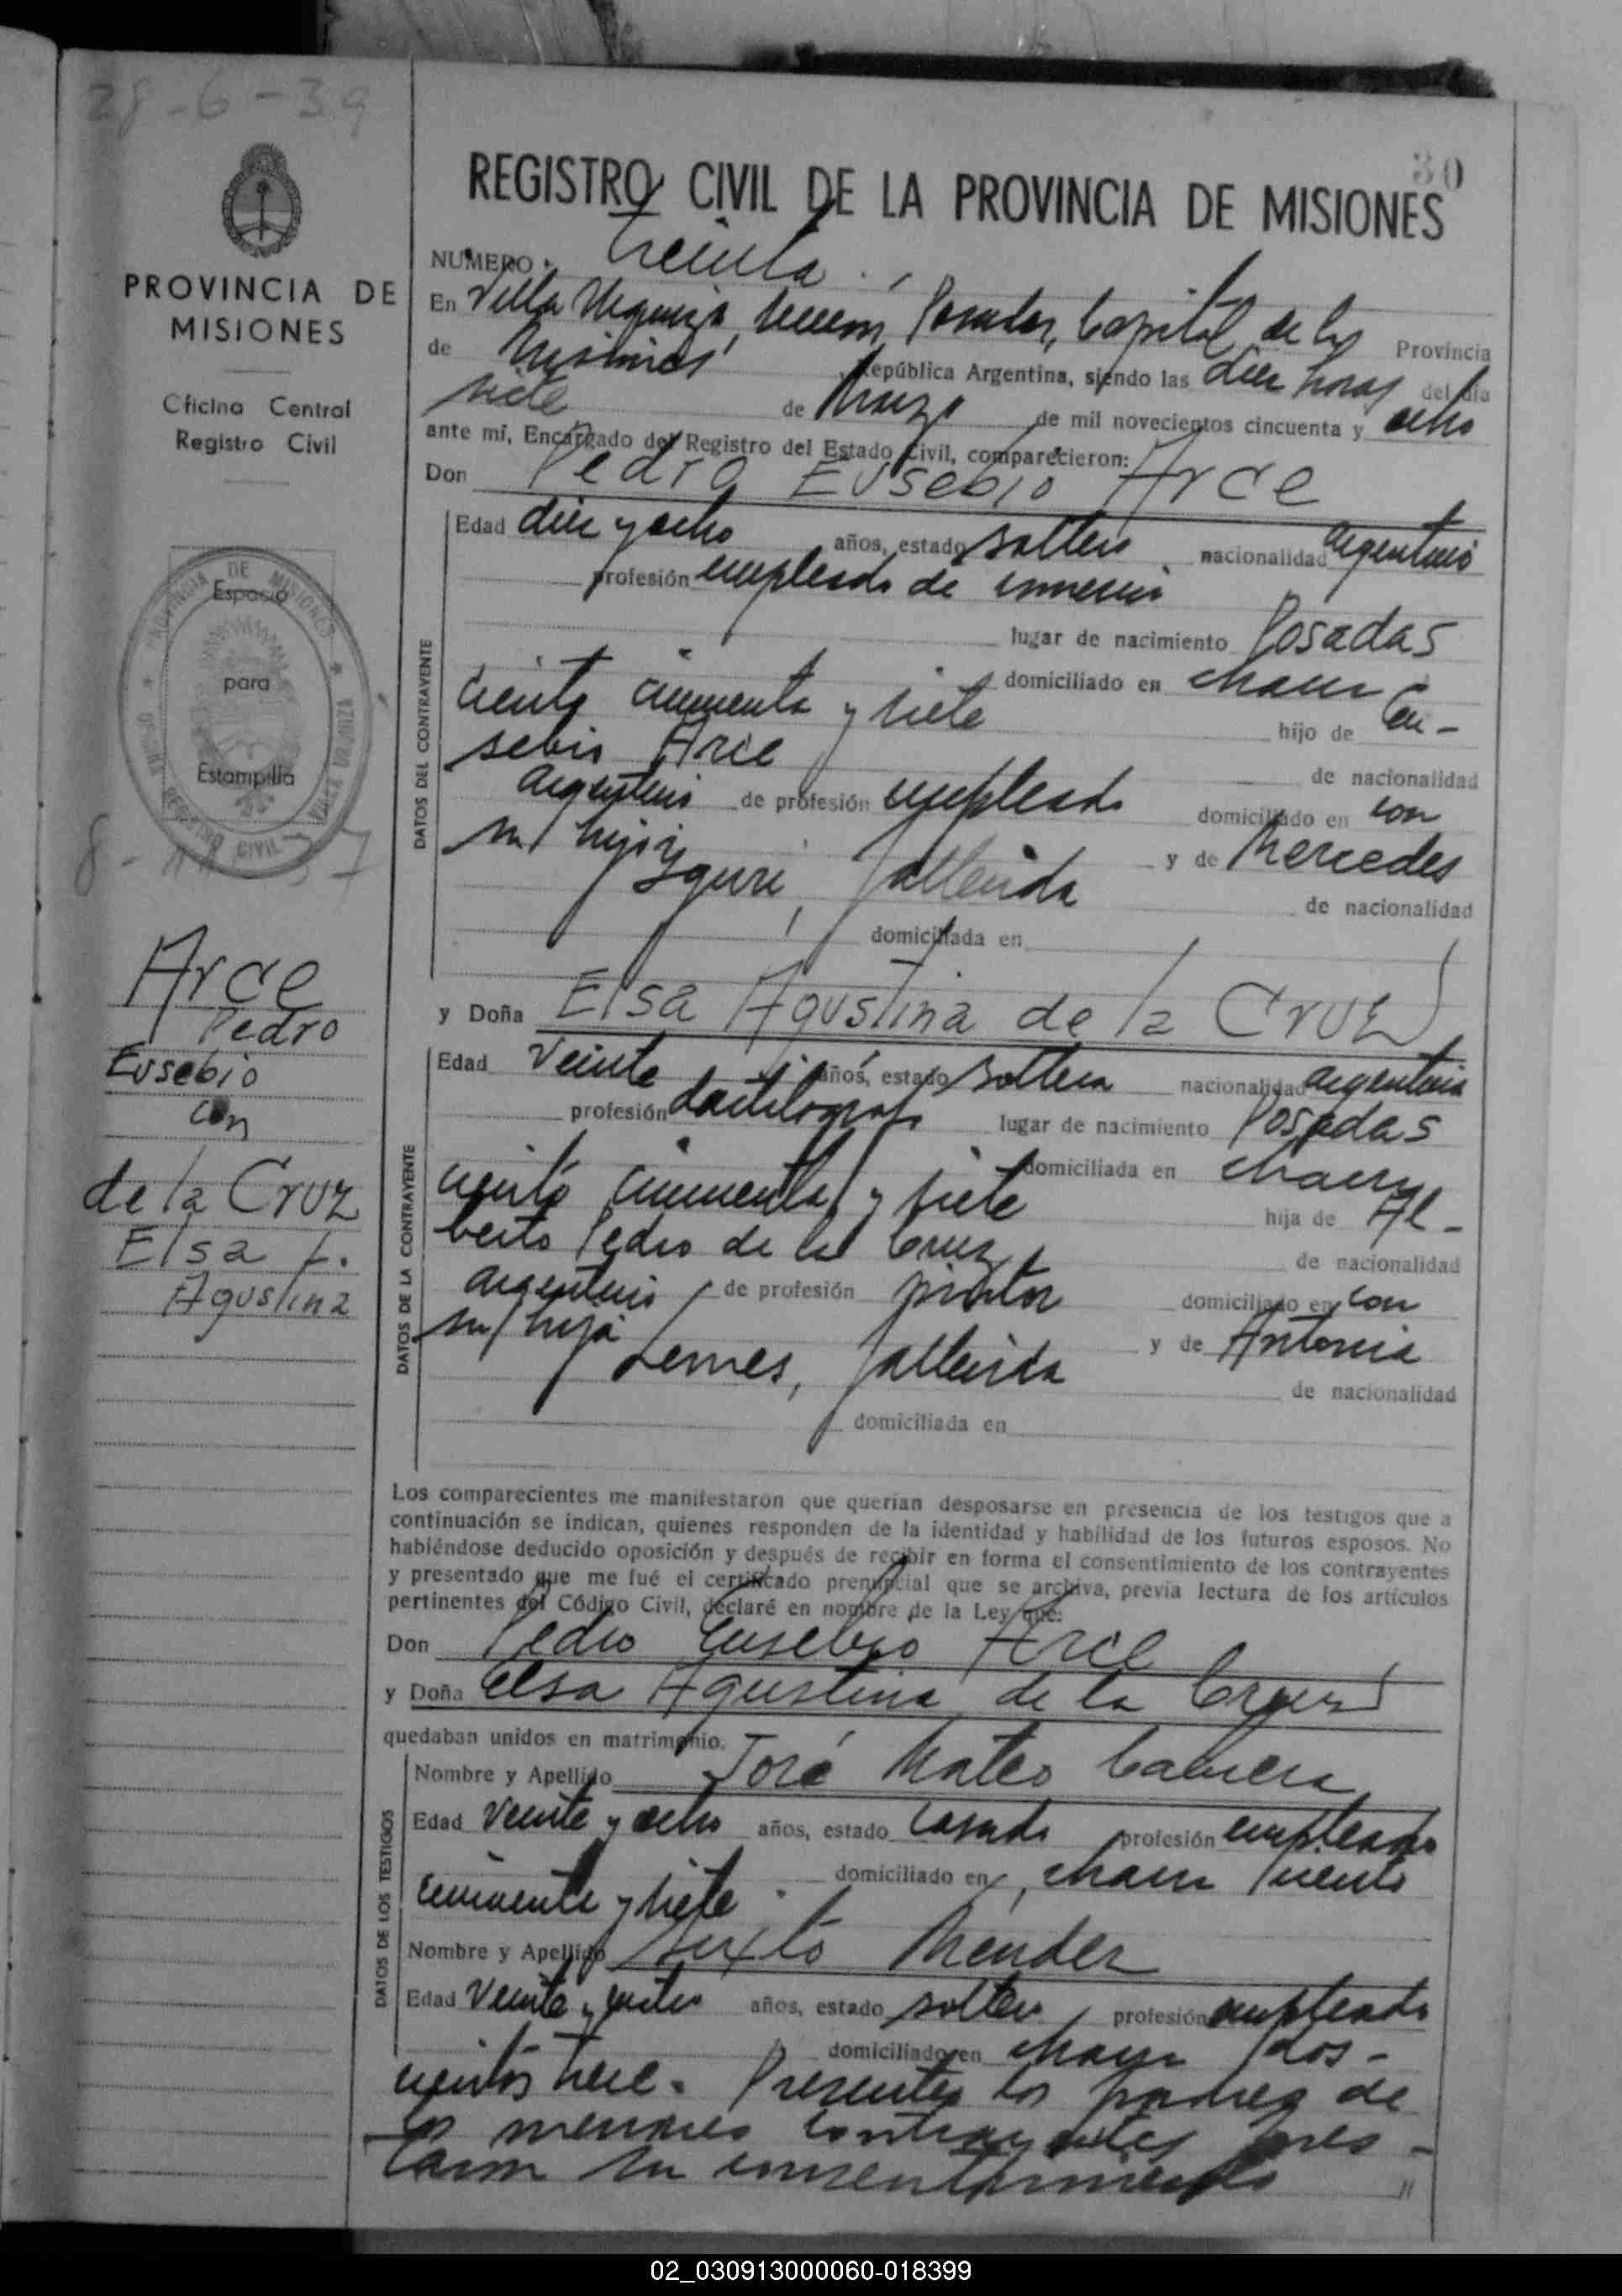 28-6-39
PROVINCIA DE
MISIONES
Oficina Central
Registro Civil
PROVINCIA DE MISIONES
Espacio
para
Estampilla
8-11-37
Arce
Pedro
Eusebio
con
de la Cruz
Elsa
Agustina
30
REGISTRO CIVIL DE LA PROVINCIA DE MISIONES
NUMERO treinta
En Villa Urquiza, Posadas, Capital de la Provincia
de Misiones República Argentina, siendo las diez horas del día
siete de Marzo de mil novecientos cincuenta y ocho
ante mi, Encargado del Registro del Estado Civil, comparecieron:
Don Pedro Eusebio Arce
DATOS DEL CONTRAYENTE
Edad diez y ocho años, estado soltero nacionalidad argentino
profesión empleado de comercio
lugar de nacimiento Posadas
domiciliado en chacra
ciento cincuenta y siete hijo de Eu-
sebio Arce de nacionalidad
argentino de profesión empleado domiciliado en con
su hijo y de Mercedes
Yguri, fallecida de nacionalidad
domiciliada en
y Doña Elsa Agustina de la Cruz
DATOS DE LA CONTRAYENTE
Edad Veinte años, estado soltera nacionalidad argentina
profesión dactilografa lugar de nacimiento Posadas
domiciliada en chacra
ciento cincuenta y siete hija de Al-
berto Pedro de la Cruz de nacionalidad
argentino de profesión pintor domiciliado en con
su hija y de Antonia
Lemes, fallecida de nacionalidad
domiciliada en
Los comparecientes me manifestaron que querían desposarse en presencia de los testigos que a
continuación se indican, quienes responden de la identidad y habilidad de los futuros esposos. No
habiéndose deducido oposición y después de recibir en forma el consentimiento de los contrayentes
y presentado que me fué el certificado prenupcial que se archiva, previa lectura de los artículos
pertinentes del Código Civil, declaré en nombre de la Ley que:
Don Pedro Eusebio Arce
y Doña Elsa Agustina de la Cruz
quedaban unidos en matrimonio.
DATOS DE LOS TESTIGOS
Nombre y Apellido José Mateo Cabrera
Edad Veinte y ocho años, estado casado profesión empleado
domiciliado en chacra ciento
cincuenta y siete
Nombre y Apellido Sixto Mendez
Edad Veinte y años, estado soltero profesión empleado
domiciliado en chacra dos-
cientos trece. Presentes los padres de
los menores contrayentes pres-
taron su consentimiento "
02_030913000060-018399